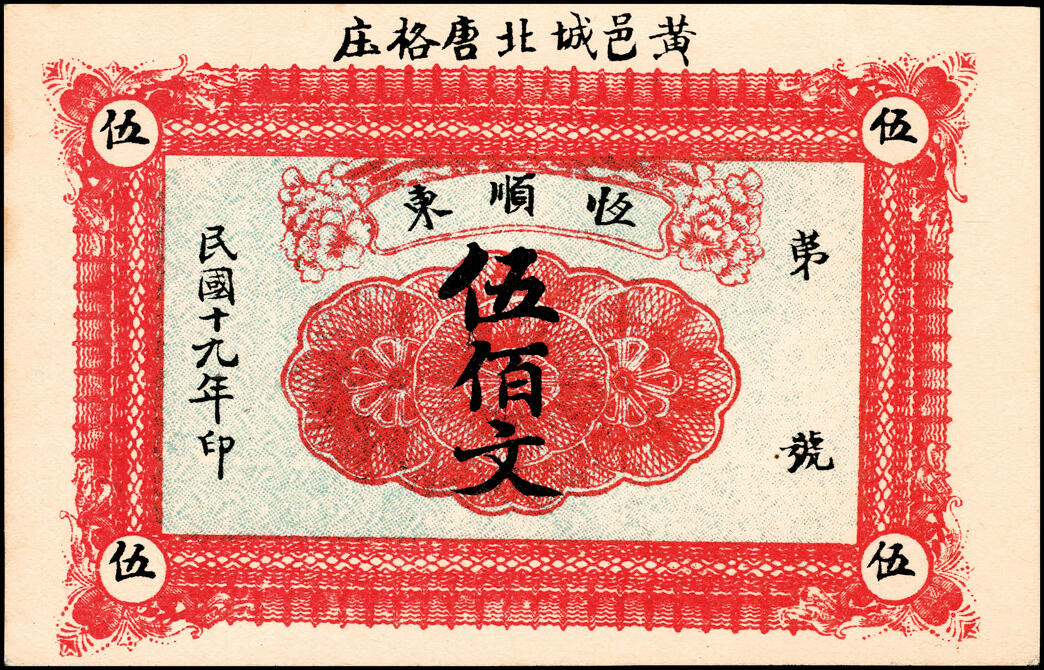 黃邑城北唐格庄
伍
伍
恆順東
第 號
伍佰文
民國十九年印
伍
伍